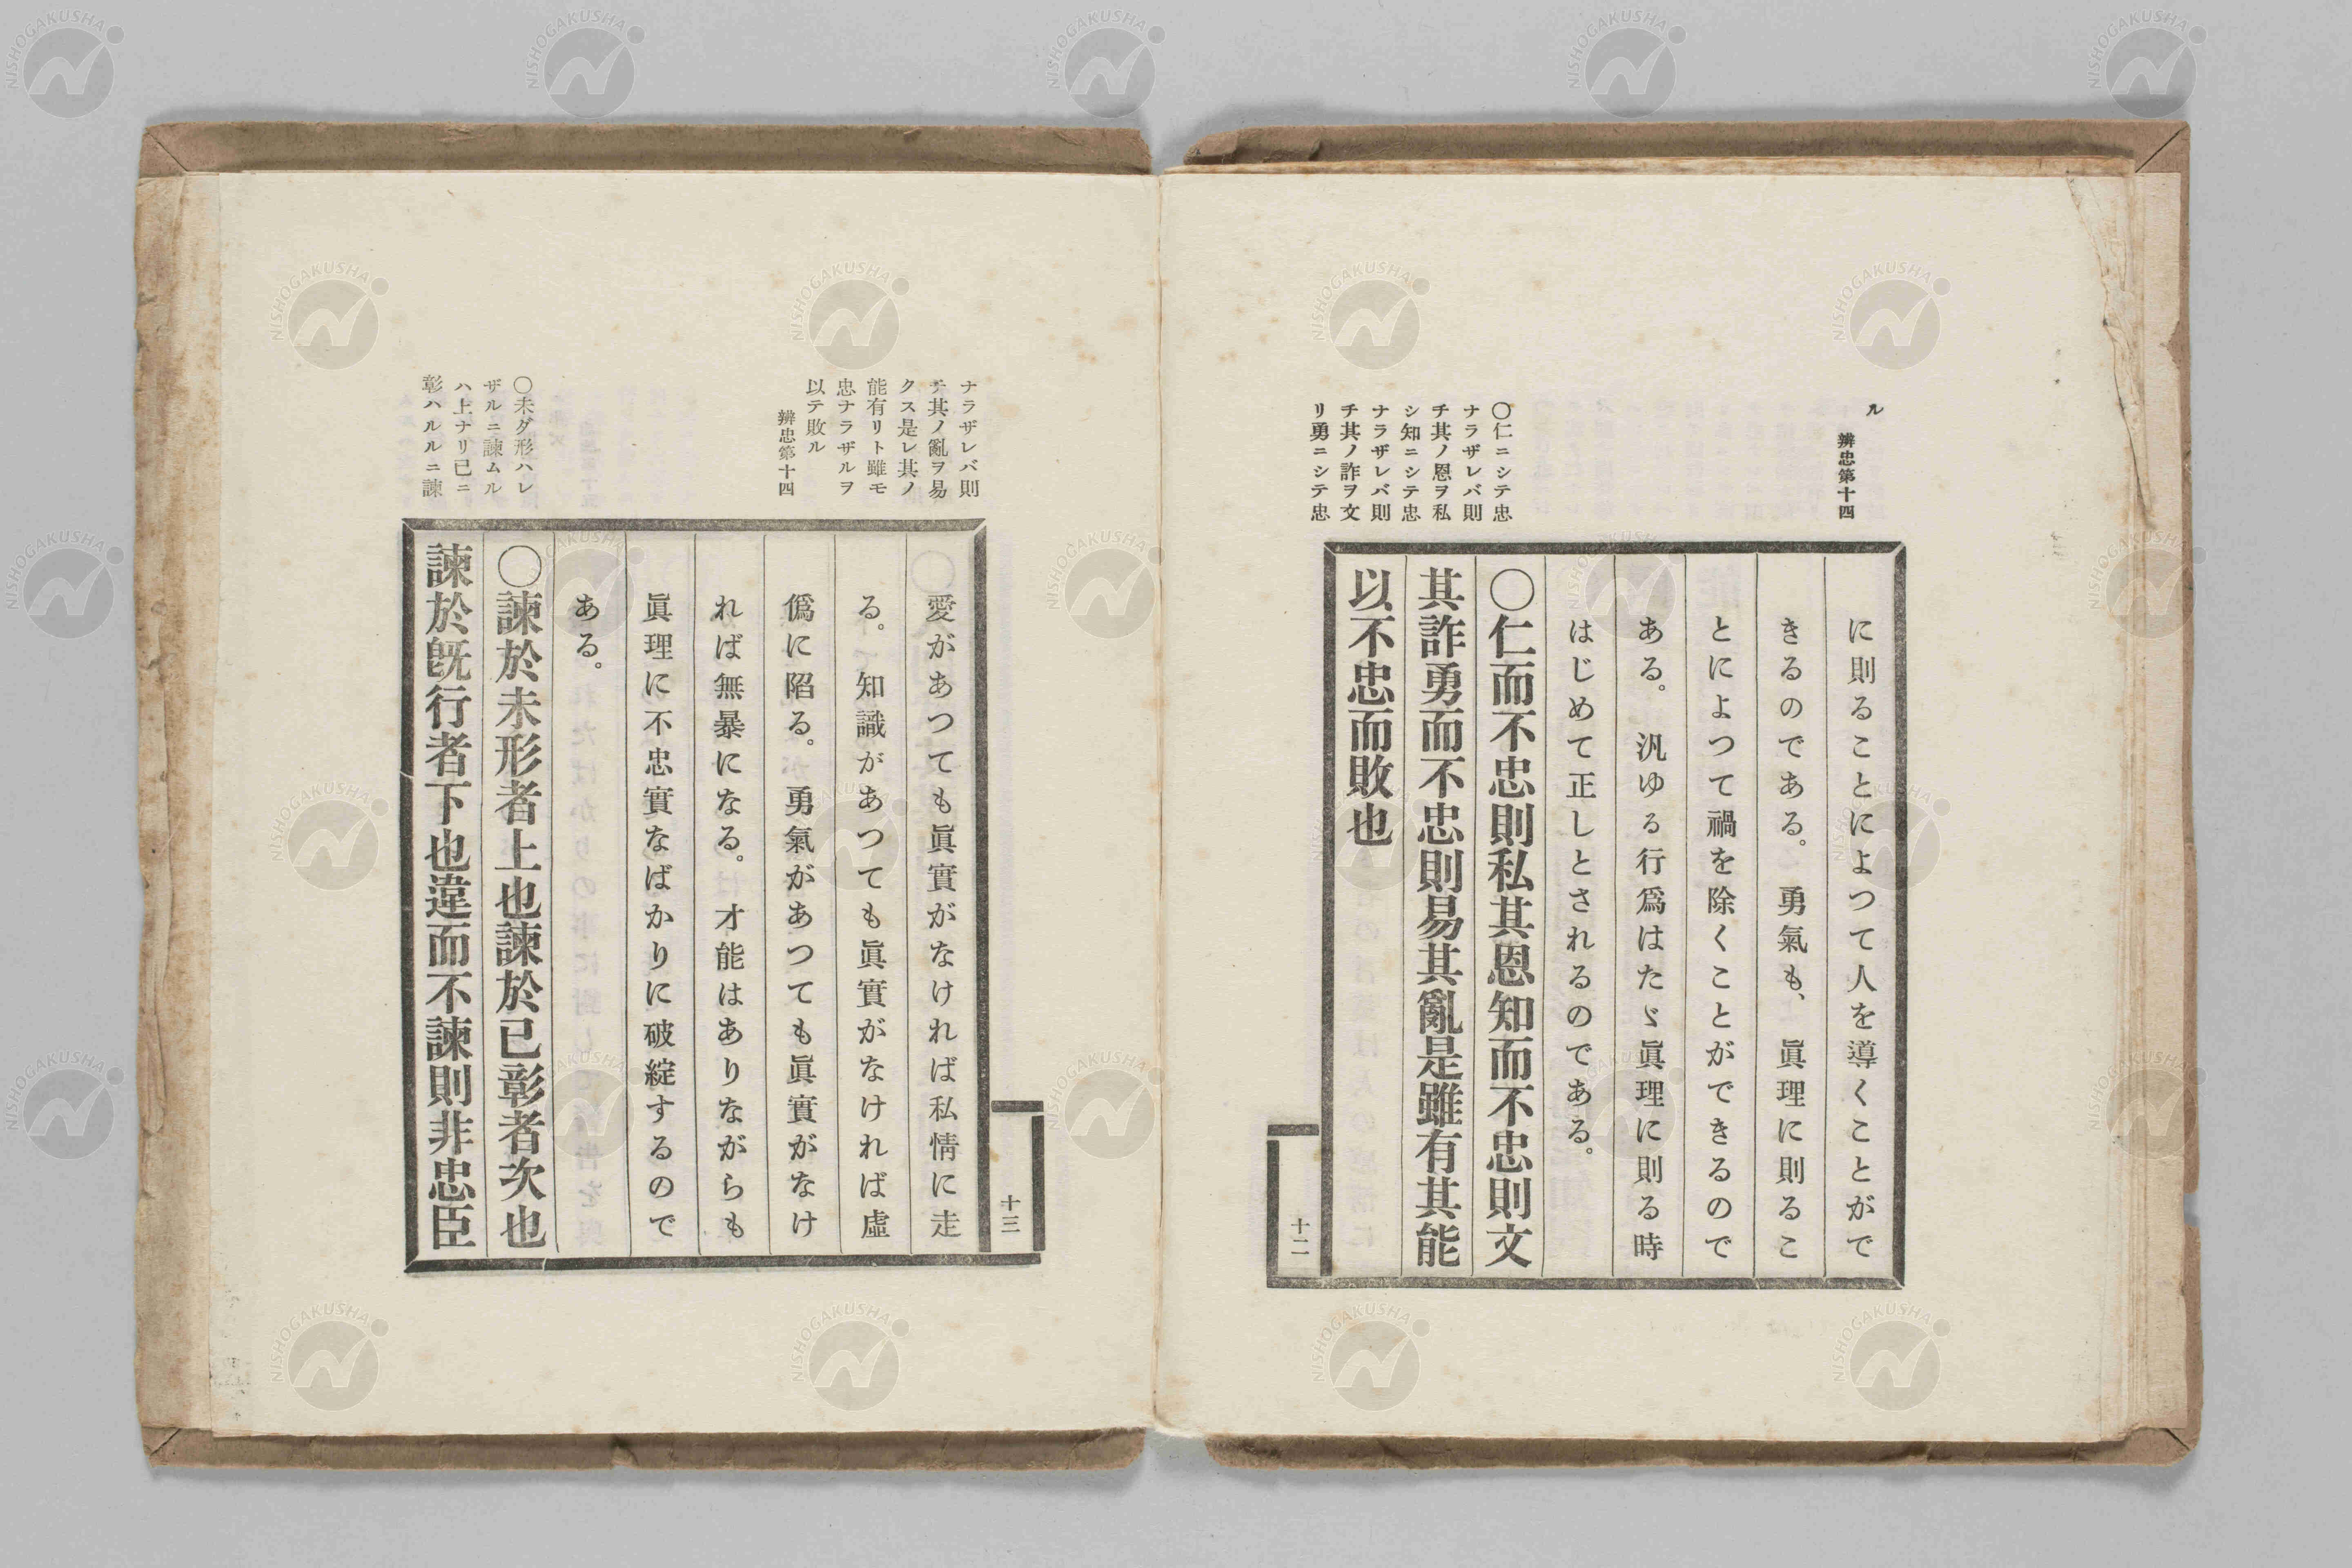 ル
辨忠第十四
〇仁ニシテ忠
ナラザレバ則
チ其ノ恩ヲ私
シ知ニシテ忠
ナラザレバ則
チ其ノ詐ヲ文
リ勇ニシテ忠
に則ることによつて人を導くことがで
きるのである。勇氣も、眞理に則るこ
とによつて禍を除くことができるので
ある。汎ゆる行爲はたゞ眞理に則る時
はじめて正しとされるのである。
〇仁而不忠則私其恩知而不忠則文
其詐勇而不忠則易其亂是雖有其能
以不忠而敗也
十二
ナラザレバ則
チ其ノ亂ヲ易
クス是レ其ノ
能有リト雖モ
忠ナラザルヲ
以テ敗ル
辨忠第十四
〇未ダ形ハレ
ザルニ諫ムル
ハ上ナリ已ニ
彰ハルルニ諫
愛があつても眞實がなければ私情に走
る。知識があつても眞實がなければ虛
僞に陷る。勇氣があつても眞實がなけ
れば無暴になる。才能はありながらも
眞理に不忠實なばかりに破綻するので
ある。
〇諫於未形者上也諫於已彰者次也
諫於旣行者下也違而不諫則非忠臣
十三
NISHOGAKUSHA